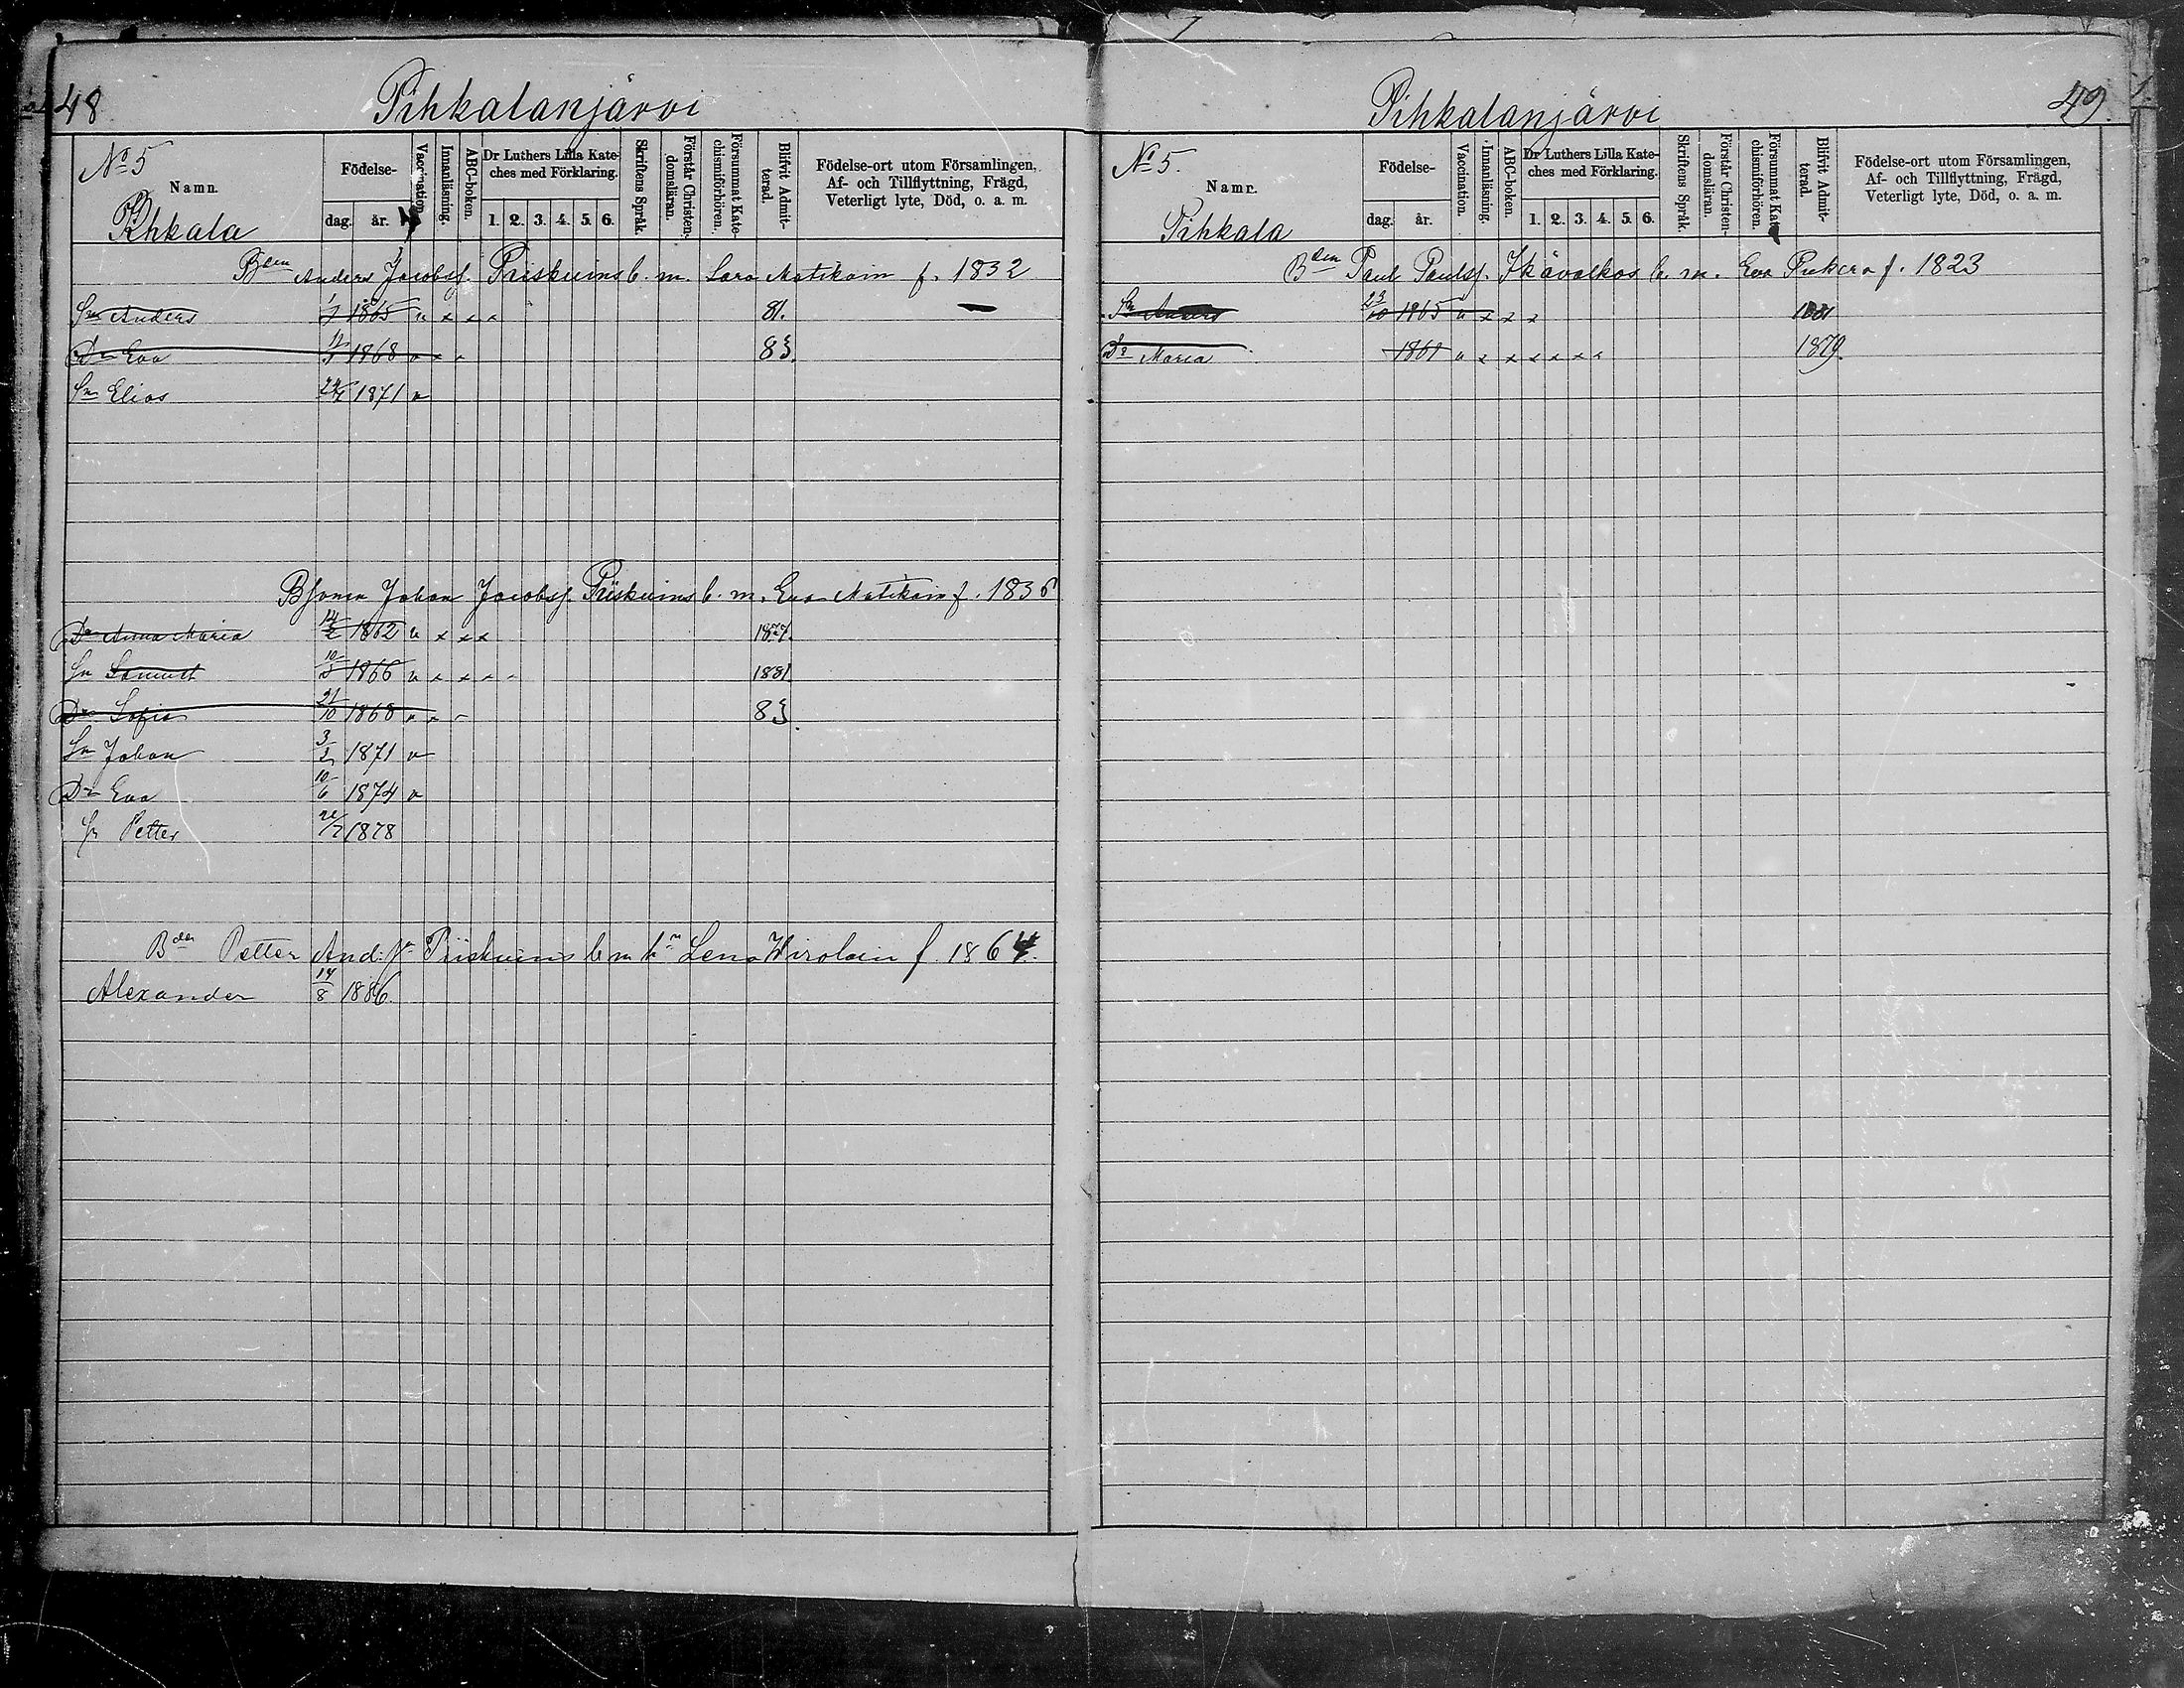 48 Pihkalanjärvi
No 5
Namn.
Pihkala
Födelse-
dag. år.
Vaccination.
Innanläsning.
ABC-boken.
Dr Luthers Lilla Kateches med Förklaring.
1. 2. 3. 4. 5. 6.
Skriftens Språk.
Förstår Christendomsläran.
Försummat Katechismiförhören.
Blifvit Admitterad.
Födelse-ort utom Församlingen,
Af- och Tillflyttning, Frägd,
Veterligt lyte, Död, o. a. m.
Bden Anders Jacobsf. Priskuins b. m. Sara Matikain f. 1832
Sn Anders 1/7 1865 v x x x 81.
Dr Eva 1868 v x 83.
Sn Elias 1871 v
Bsonen Johan Jacobsf. Piiskuins b. m. Eva Matikain f. 1836
Dr Anna Maria 14/2 1862 v x x x 1877.
Sn Samuel 10/5 1866 v x x x x 1881
Dr Sofia 21/10 1868 v x 83
Sn Johan 3/2 1871 v
Dr Eva 10/6 1874 v
Sn Petter 1878
Bden Petter And: Piiskuins b m hu Lena Wirolain f. 1864.
Alexander 14/8 1886.
Pihkalanjärvi 49.
No 5.
Namn.
Pihkala
Födelse-
dag. år.
Vaccination.
Innanläsning.
ABC-boken.
Dr Luthers Lilla Kateches med Förklaring.
1. 2. 3. 4. 5. 6.
Skriftens Språk.
Förstår Christendomsläran.
Försummat Katechismiförhören.
Blifvit Admitterad.
Födelse-ort utom Församlingen,
Af- och Tillflyttning, Frägd,
Veterligt lyte, Död, o. a. m.
Bden Paul Paulsf. Ikävalkos b. m. Eva Pukera f. 1823
Sn Anders 23/10 1865 v x x x 1881
Dr Maria 1861 v x x x x x x 1879.